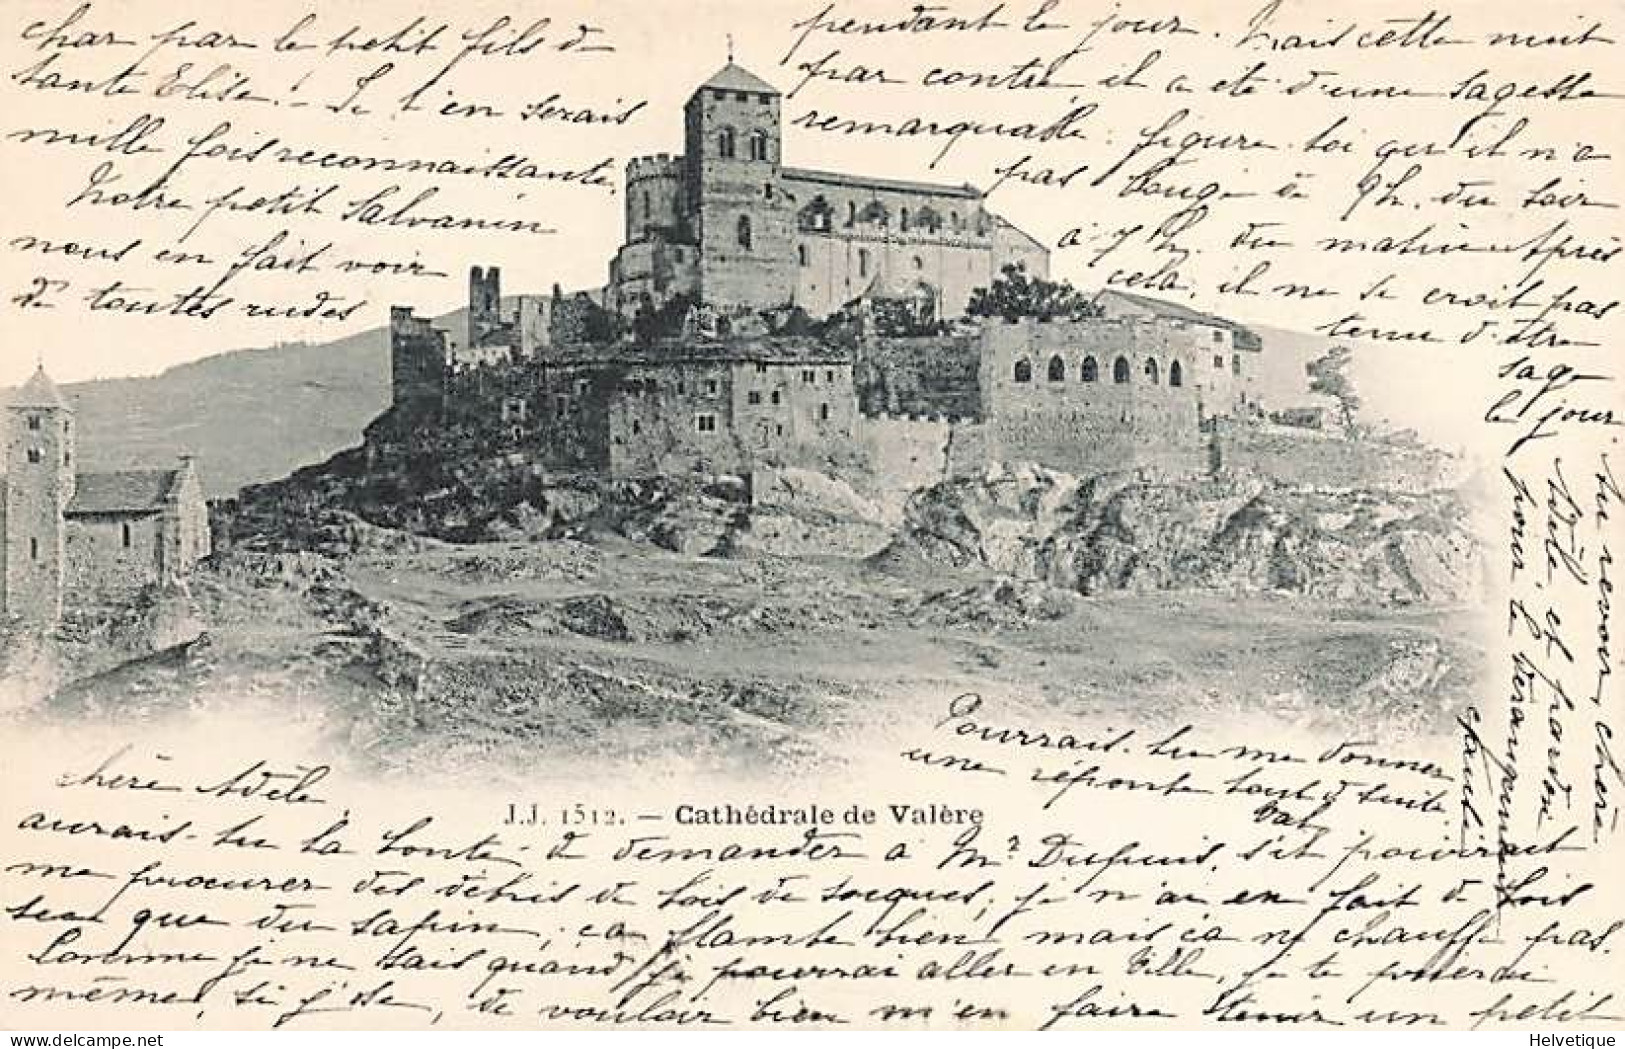 Chère Adèle,
aurais-tu la bonté de demander à Mr Dupuis, s'il pourrait
me procurer des débris de bois de socques, je n'ai en fait de bois
sec que du sapin, ça flambe bien, mais ça ne chauffe pas.
Comme je ne sais quand je pourrai aller en ville, je te prierai
même, si j'ose, de vouloir bien m'en faire tenir un petit
char par le petit fils de
tante Elise! - Je t'en serais
mille fois reconnaissante.
Notre petit Salvanin
nous en fait voir
de toutes rudes
pendant le jour. Mais cette nuit
par contre il a été d'une sagesse
remarquable. figure-toi qu'il n'a
pas bougé de 9h. du soir
à 7 h. du matin. Après
cela, il ne se croit pas
tenu d'être
sage
le jour.
Au revoir, chère
Adèle et pardon
pour le dérangement
Pauline
Pourrais-tu me donner
une réponse tout de suite
J.J. 1512. — Cathédrale de Valère
Helvetique